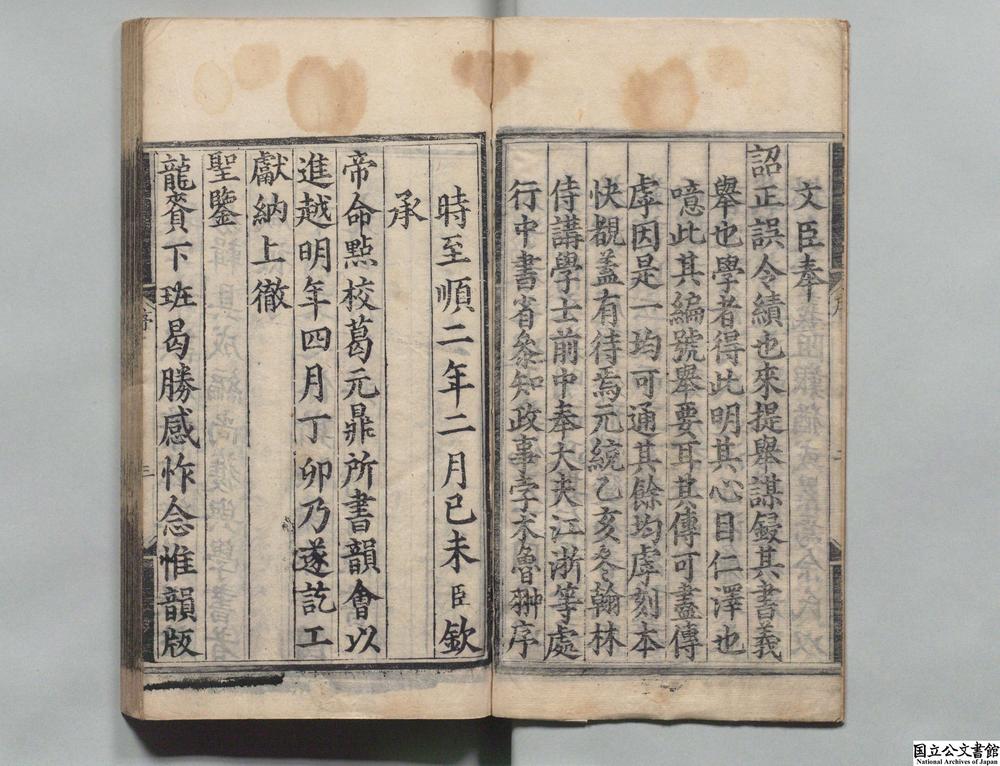 文臣奉
詔正誤令績也來提舉謀鋟其書義
舉也學者得此明其心目仁澤也
噫此其編號舉要耳其傳可盡傳
虖因是一均可通其餘均虖刻本
快覩蓋有待焉元統乙亥冬翰林
侍講學士前中奉大夫江浙等處
行中書省叅知政事孛朮魯翀序
時至順二年二月己未臣欽
承
帝命點校葛元鼎所書韻會以
進越明年四月丁卯乃遂訖工
獻納上徹
聖鑒
龍賚下班曷勝感怍念惟韻版
序
三
国立公文書館
National Archives of Japan